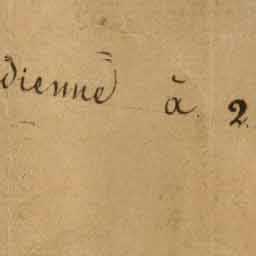 dienne à 2.